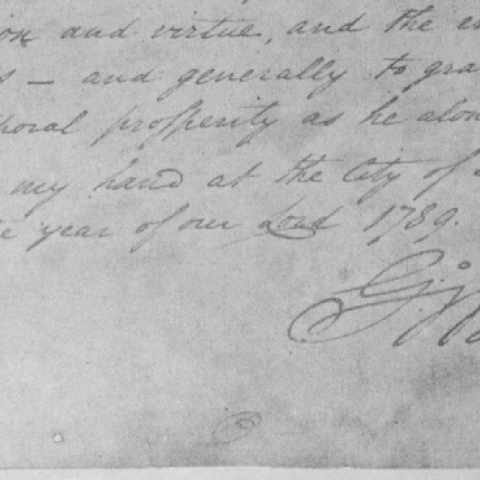 ion and virtue, and the en
s — and generally to gra
poral prosperity as he alon
my hand at the City of
e year of our Lord 1789.
G:Wa